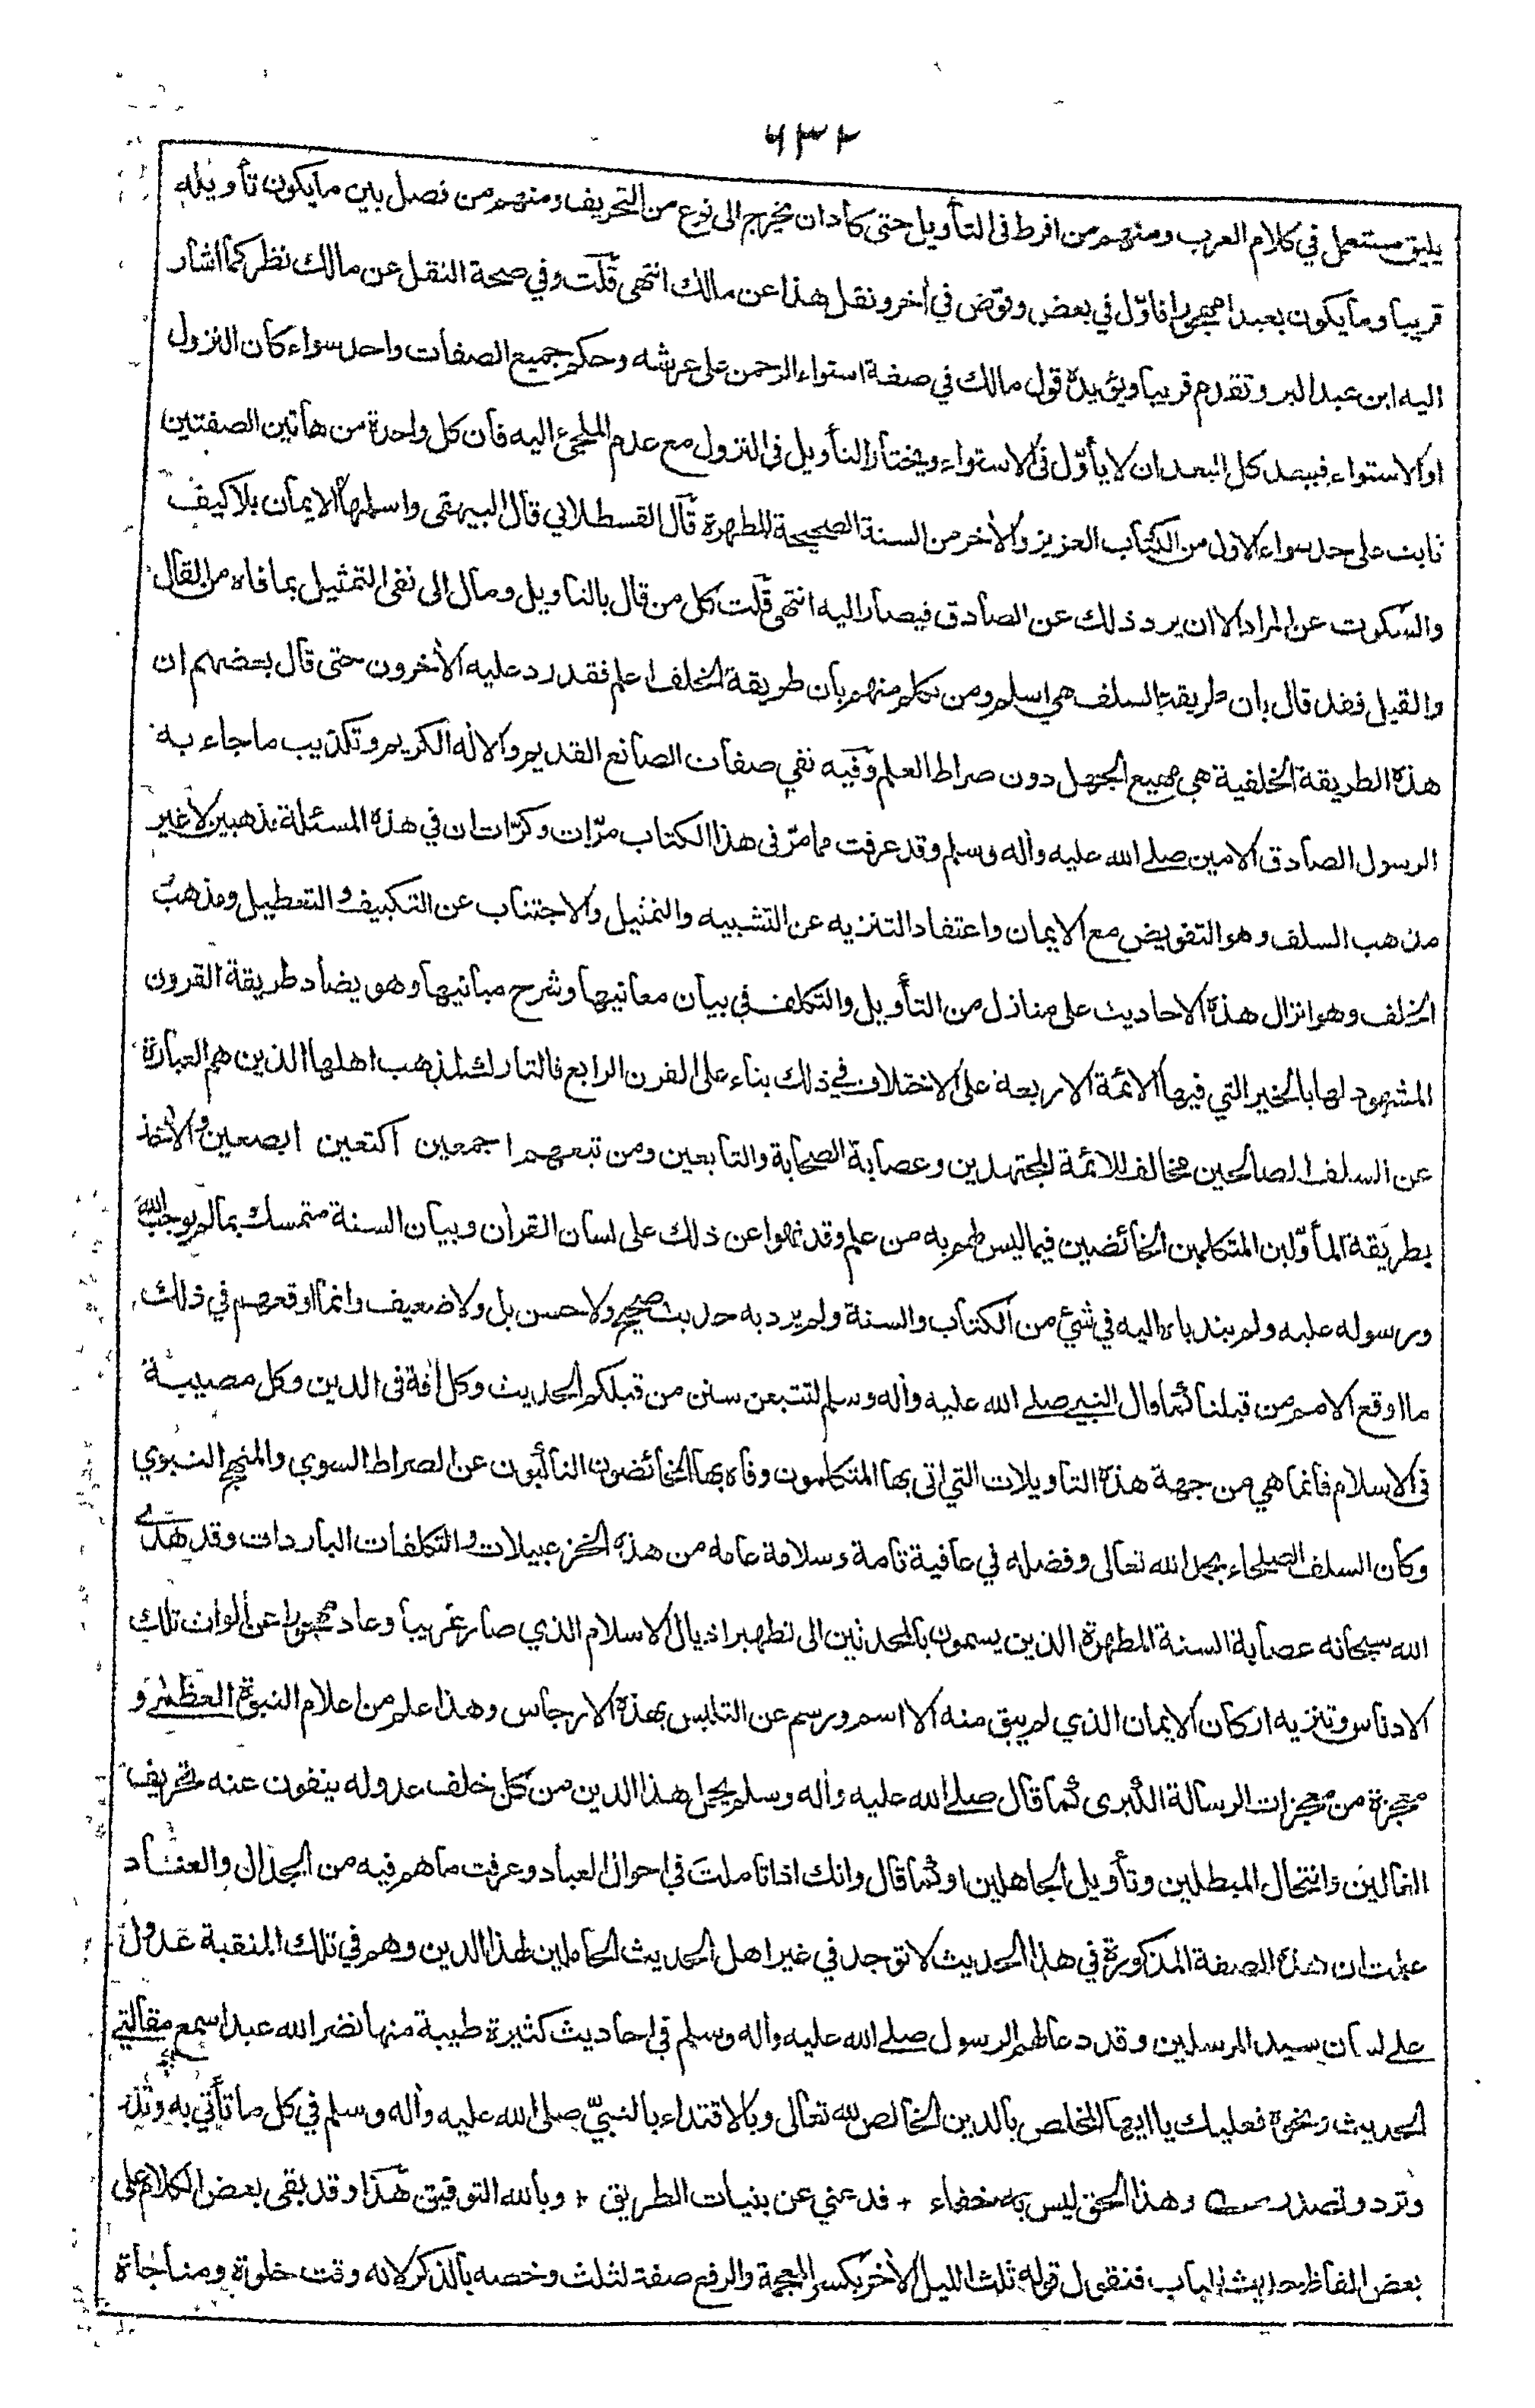 ٦٣٢
يليق مستعمل في كلام العرب ومنهم من افرط في التأويل حتى كاد ان يخرج الى نوع من التحريف ومنهم من فصل بين ما يكون تأويله
قريبا وما يكون بعيدا مهجورا فاوّل في بعض وفوّض في أخر ونقل هذا عن مالك انتهى قلت وفي صحة النقل عن مالك نظر كما اشار
اليه ابن عبد البر وتقدم قريبا ويؤيده قول مالك في صفة استواء الرحمن على عرشه وحكم جميع الصفات واحد سواء كان النزول
او الاستواء فيبعد كل البعد ان لا يأوّل في الاستواء ويختار التأويل في النزول مع عدم الملجئ اليه فان كل واحدة من هاتين الصفتين
ثابت على حد سواء الاول من الكتاب العزيز والأخر من السنة الصحيحة المطهرة قال القسطلاني قال البيهقي واسلمها الايمان بلا كيف
والسكوت عن المراد الا ان يرد ذلك عن الصادق فيصار اليه انتهى قلت كل من قال بالتاويل ومال الى نفي التمثيل بما فاه من القال
والقيل فقد قال بان طريقة السلف هي اسلم ومن تكلم منهم بان طريقة الخلف اعلم فقد رد عليه الأخرون حتى قال بعضهم ان
هذه الطريقة الخلفية هي مهيع الجهل دون صراط العلم وفيه نفي صفات الصانع القديم والاله الكريم وتكذيب ما جاء به
الرسول الصادق الامين صلى الله عليه وأله وسلم وقد عرفت مما مرّ في هذا الكتاب مرّات وكرّات ان في هذه المسئلة مذهبين لا غير
مذهب السلف وهو التفويض مع الايمان واعتقاد التنزيه عن التشبيه والتمثيل والاجتناب عن التكييف والتعطيل ومذهب
الخلف وهو انزال هذه الاحاديث على منازل من التأويل والتكلف في بيان معانيها وشرح مبانيها وهو يضاد طريقة القرون
المشهود لها بالخير التي فيها الائمة الاربعة على الاختلاف في ذلك بناء على القرن الرابع فالتارك لمذهب اهلها الذين هم العبارة
عن السلف الصالحين مخالف للائمة المجتهدين وعصابة الصحابة والتابعين ومن تبعهم اجمعين اكتعين ابصعين والأخذ
بطريقة المأوّلين المتكلمين الخائضين فيما ليس لهم به من علم وقد نهوا عن ذلك على لسان القرأن وبيان السنة متمسك بما لم يوجب الله
ورسوله عليه ولم يندباه اليه في شئ من الكتاب والسنة ولم يرد به حديث صحيح ولا حسن بل ولا ضعيف وانما اوقعهم في ذلك
ما اوقع الامم من قبلنا كما قال النبي صلى الله عليه وأله وسلم لتتبعن سنن من قبلكم الحديث وكل أفة في الدين وكل مصيبة
في الاسلام فانما هي من جهة هذه التاويلات التي اتى بها المتكلمون وفاه بها الخائضون الناكبون عن الصراط السوي والمنهج النبوي
وكان السلف الصلحاء بحمد الله تعالى وفضله في عافية تامة وسلامة عامه من هذه الخزعبيلات والتكلفات الباردات وقد هدى
الله سبحانه عصابة السنة المطهرة الذين يسمون بالمحدثين الى تطهير اذيال الاسلام الذي صار غريبا وعاد مهجورا عن الواث تلك
الادناس وتنزيه اركان الايمان الذي لم يبق منه الا اسم ورسم عن التلبس بهذه الارجاس وهذا علم من اعلام النبوة العظمى و
معجزة من معجزات الرسالة الكبرى كما قال صلى الله عليه وأله وسلم يحمل هذا الدين من كل خلف عدوله ينفون عنه تحريف
الغالين وانتحال المبطلين وتأويل الجاهلين او كما قال وانك اذا تأملت في احوال العباد وعرفت ما هم فيه من الجدال والعناد
علمت ان هذه الصفة المذكورة في هذا الحديث لا توجد في غير اهل الحديث الحاملين لهذا الدين وهم في تلك المنقبة عدول
على لسان سيد المرسلين وقد دعا لهم الرسول صلى الله عليه وأله وسلم في احاديث كثيرة طيبة منها نضر الله عبدا سمع مقالتي
الحديث ونحوه فعليك يا ايها المخلص بالدين الخالص لله تعالى وبالاقتداء بالنبيّ صلى الله عليه وأله وسلم في كل ما تأتي به وتذر
وترد وتصدر وهذا الحق ليس به خفاء + فدعني عن بنيات الطريق + وبالله التوفيق هذا وقد بقي بعض الكلام على
بعض الفاظ حديث الباب فنقول قوله ثلث الليل الأخر بكسر المعجمة والرفع صفة لثلث وخصه بالذكر لانه وقت خلوة ومناجاة